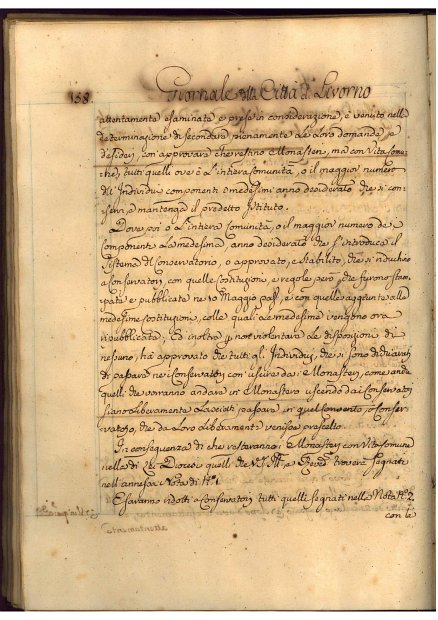 158. Giornale della Città di Livorno
attentamente esaminata e presa in considerazione, è venuto nella
determinazione di secondare pienamente le Loro domande, e
desiderj, con approvare che restino Monasteri, ma con Vita Comu-
ne, tutti quelli ove è L'intiera Comunità, o il maggior numero
degl'Individui componenti i medesimi anno desiderato che si con-
servi, e mantenga il predetto Istituto.
Dove poi o L'intiera Comunità, o il maggior numero de i
Componenti La medesima, anno desiderato che s'introduca il
Sistema di Conservatorio, o approvato, e stabilito, che si riduchino
a Conservatorj, con quelle Costituzioni, e regole però, che furono stam-
pate e pubblicate ne' 10 Maggio pass. e con quelle aggiunte alle
medesime Costituzioni, colle quali Le medesime vengono ora
ripubblicate; Ed inoltre p non violentare Le disposizioni di
nessuno, hà approvato che tutti gl. Individui, che si sono dichiarati
di passare ne i Conservatorj con uscire da i Monasteri, come anche
quelli che vorranno andare in Monastero uscendo da i Conservatorj
siano Liberamente Lasciati passare in quel Convento, o Conser-
vatorio, che da Loro Liberamente venisse prescelto.
In conseguenza di che resteranno i Monasteri con Vita Comune
nella di Lei Diocesi quelli che V.S. Ill.ma e Rev.ma troverà segnati
nell'annessa Nota di N.° 1.
E saranno ridotti a Conservatorj tutti quelli segnati nella Nota N.° 2.
con le